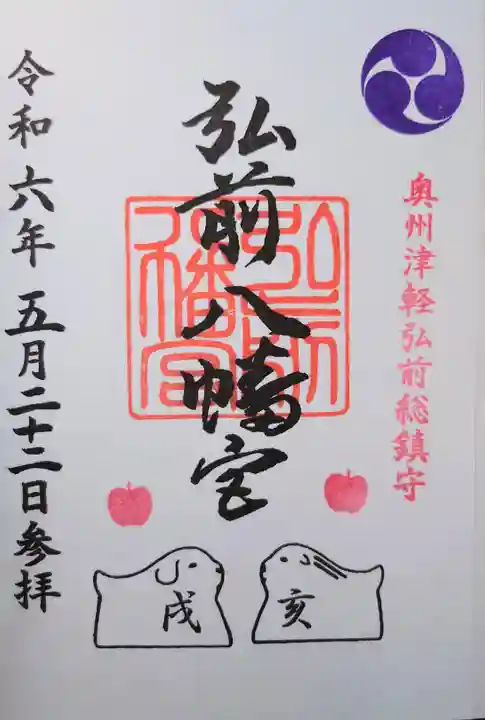 奥州津軽弘前総鎮守
弘前八幡宮
弘前八幡宮
令和六年五月二十二日参拝
戌
亥